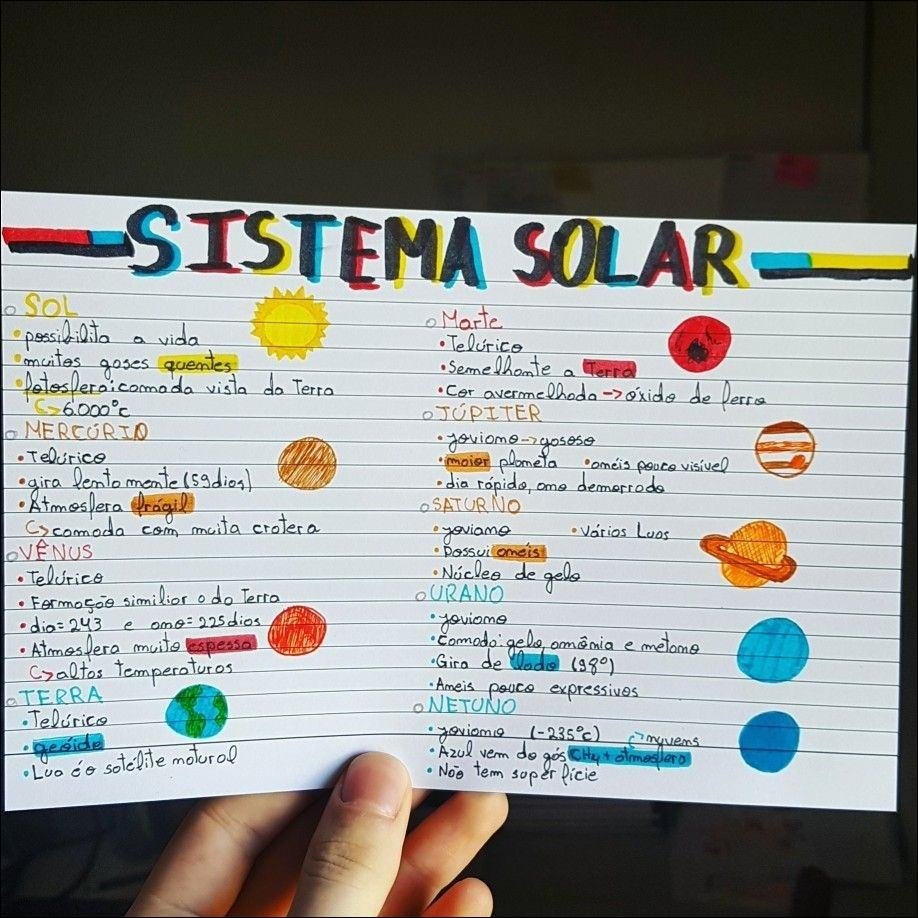 SISTEMA SOLAR
SOL
• possibilita a vida
• muitos gases quentes
• fotosfera: camada vista da Terra
↳ 6.000°c
MERCÚRIO
• Telúrico
• gira lenta mente (59 dias)
• Atmosfera frágil
↳ camada com muita cratera
VÊNUS
• Telúrico
• Formação similior a da Terra
• dia= 243 e ano= 225 dias
• Atmosfera muito espessa
↳ altas temperaturas
TERRA
• Telúrico
• geóide
• Lua é o satélite natural
Marte
• Telúrico
• Semelhante a Terra
• Cor avermelhada → óxido de ferro
JÚPITER
• joviano → gasoso
• maior planeta • anéis pouco visível
• dia rápido, ano demorrado
SATURNO
• joviano • Vários Luas
• Possui anéis
• Núcleo de gelo
URANO
• joviano
• Camada: gelo, amônia e metano
• Gira de lado (98°)
• Aneis pouco expressivos
NETUNO
• joviano (-235°c) ↱ nuvens
• Azul vem do gás CH4 + atmosfera
• Não tem superfície